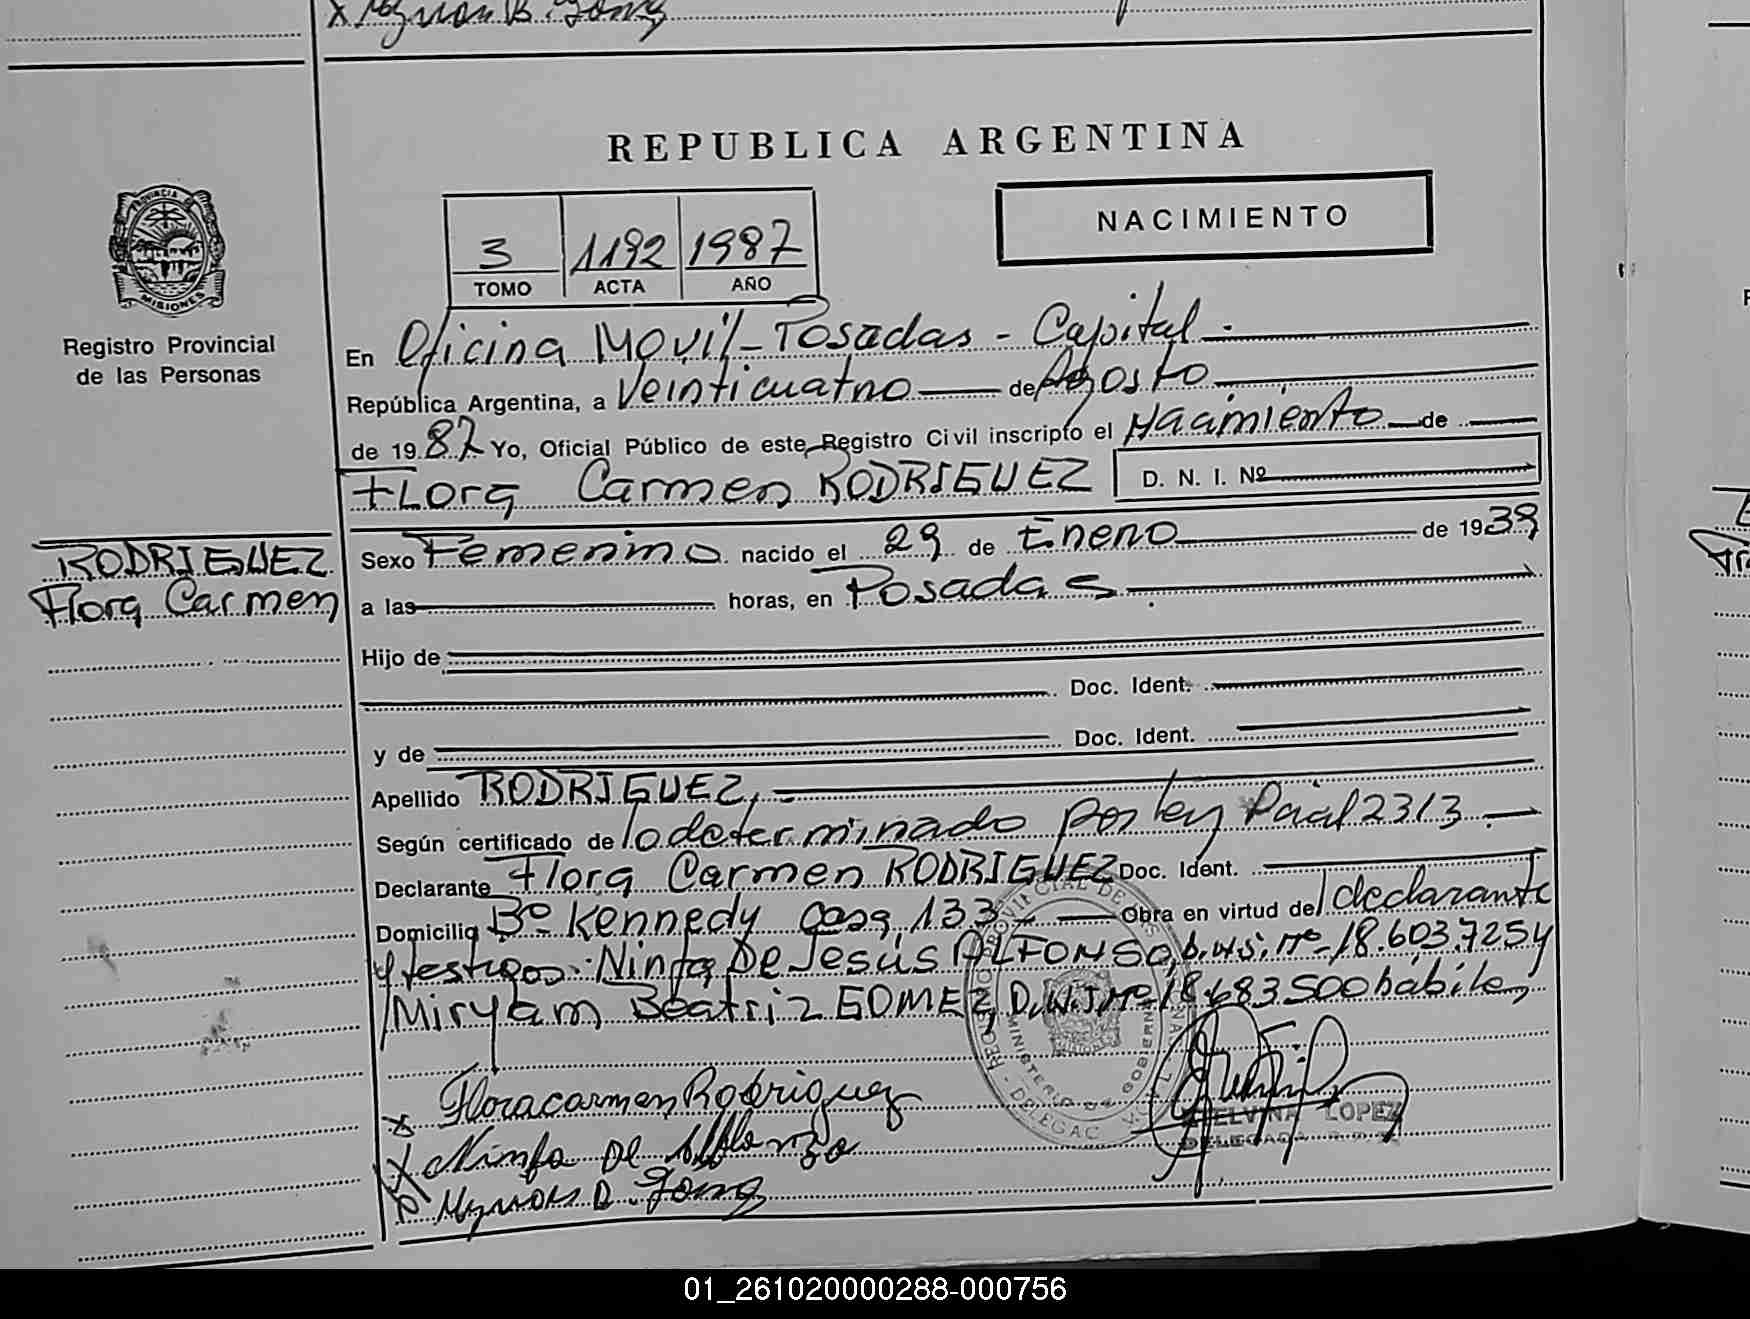 REPUBLICA ARGENTINA
PROVINCIA
MISIONES
Registro Provincial
de las Personas
3 1192 1987
TOMO ACTA AÑO
NACIMIENTO
En Oficina Movil - Posadas - Capital
República Argentina, a Veinticuatro de Agosto
de 1987 Yo, Oficial Público de este Registro Civil inscripto el Nacimiento de
Flora Carmen RODRIGUEZ D. N. I. Nº
RODRIGUEZ
Flora Carmen
Sexo Femenino nacido el 29 de Enero de 1939
a las horas, en Posadas
Hijo de
Doc. Ident.
y de Doc. Ident.
Apellido RODRIGUEZ,
Según certificado de lo determinado por ley Pcial 2313
Declarante Flora Carmen RODRIGUEZ Doc. Ident.
Domicilio Bº Kennedy Casa 133 Obra en virtud del declarante
y testigos: Ninfa De Jesús ALFONSO, D.N.I. Nº 18.603.725 y
Miryam Beatriz GOMEZ, D.N.I Nº 18.683.500 hábiles
x Flora carmen Rodriguez
x Ninfa De
ELVINA LOPEZ
DELEGADA
01_261020000288-000756